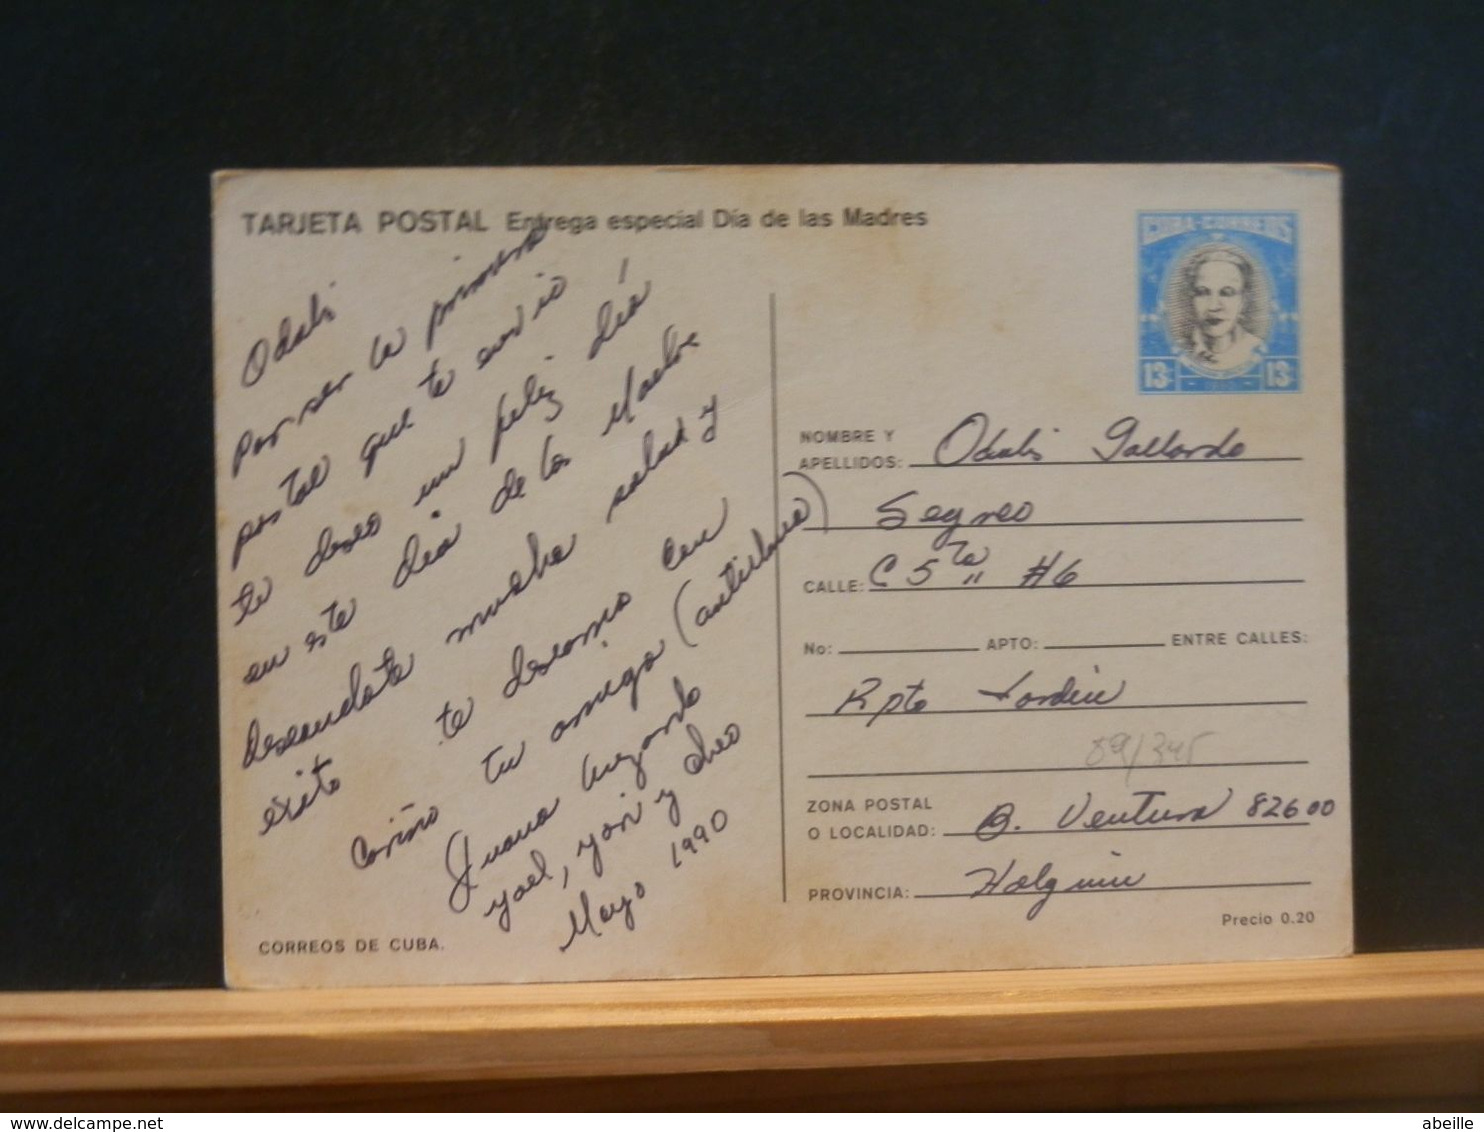 TARJETA POSTAL Entrega especial Día de las Madres
Odalis
por ser la primera
postal que te envio
te deseo un feliz día
en este día de las Madre
deseandote mucha salud y
exito te deseamos con
Cariño tu amiga
Juana
yael, yori y cheo
Mayo 1990
CORREOS DE CUBA.
CUBA-CORREOS
13c 13c
NOMBRE Y
APELLIDOS: Odalis Gallardo
Segreo
CALLE: C 5ta #6
No: APTO: ENTRE CALLES:
Rpto
09/345
ZONA POSTAL
O LOCALIDAD: B. Ventura 82600
PROVINCIA: Holguin
Precio 0.20
abeille